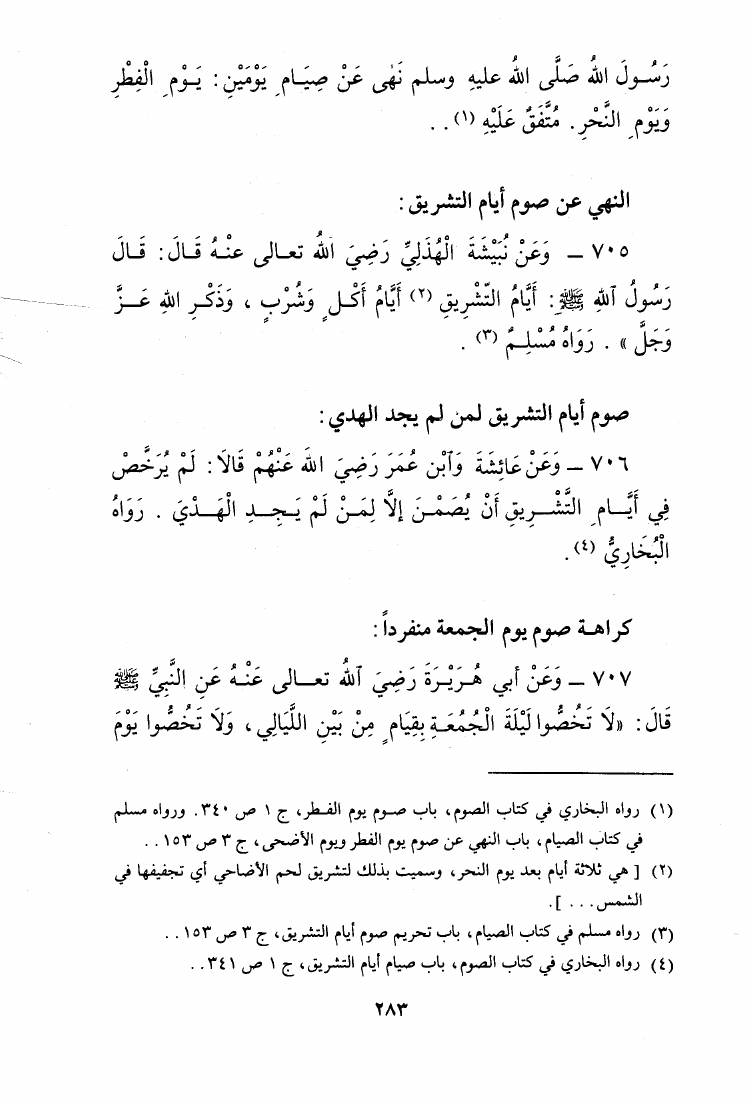 رَسُولَ اللهُ صَلَّى اللهُ عليهِ وسلم نَهَى عَنْ صِيَامِ يَوْمَيْنِ: يَوْمِ الْفِطْرِ
وَيَوْمِ النَّحْرِ. مُتَّفَقٌ عَلَيْهِ (١) . .
النهي عن صوم أيام التشريق:
٧٠٥ ــ وَعَنْ نُبَيْشَةَ الْهُذَلِيِّ رَضِيَ اللهُ تعالى عنْهُ قَالَ: قَالَ
رَسُولُ اللهِ ﷺ: أَيَّامُ التّشْرِيقِ (٢) أَيَّامُ أَكْلٍ وَشُرْبٍ ، وَذِكْرِ اللهِ عَزَّ
وَجَلَّ » . رَوَاهُ مُسْلِمٌ (٣) .
صوم أيام التشريق لمن لم يجد الهدي:
٧٠٦ ــ وَعَنْ عَائِشَةَ وَابْنِ عُمَرَ رَضِيَ اللهُ عَنْهُمْ قَالَا: لَمْ يُرَخَّصْ
فِي أَيَّامِ التَّشْرِيقِ أَنْ يُصَمْنَ إلَّا لِمَنْ لَمْ يَجِدِ الْهَدْيَ . رَوَاهُ
الْبُخَارِيُّ (٤).
كراهة صوم يوم الجمعة منفرداً:
٧٠٧ ــ وَعَنْ أبي هُرَيْرَةَ رَضِيَ اللهُ تعالى عَنْهُ عَنِ النَّبِيِّ ﷺ
قَالَ: «لَا تَخُصُّوا لَيْلَةَ الْجُمُعَةِ بِقِيَامٍ مِنْ بَيْنِ اللَّيَالِي، وَلَا تَخُصُّوا يَوْمَ
(١) رواه البخاري في كتاب الصوم، باب صوم يوم الفطر، ج ١ ص ٣٤٠. ورواه مسلم
في كتاب الصيام، باب النهي عن صوم يوم الفطر ويوم الأضحى، ج ٣ ص ١٥٣. .
(٢) [ هي ثلاثة أيام بعد يوم النحر، وسميت بذلك لتشريق لحم الأضاحي أي تجفيفها في
الشمس. . . ].
(٣) رواه مسلم في كتاب الصيام، باب تحريم صوم أيام التشريق، ج ٣ ص ١٥٣. .
(٤) رواه البخاري في كتاب الصوم، باب صيام أيام التشريق، ج ١ ص ٣٤١. .
٢٨٣